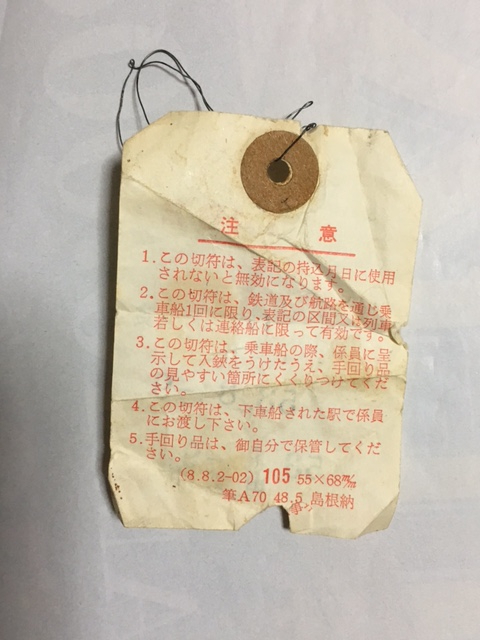 注意
1.この切符は、表記の持込月日に使用
されないと無効になります。
2.この切符は、鉄道及び航路を通じ乗
車船1回に限り、表記の区間又は列車
若しくは連絡船に限って有効です。
3.この切符は、乗車船の際、係員に呈
示して入鋏をうけたうえ、手回り品
の見やすい箇所にくくりつけてくだ
さい。
4.この切符は、下車船された駅で係員
にお渡し下さい。
5.手回り品は、御自分で保管してくだ
さい。
(8.8.2-02) 105 55×68m/m
筆A70 48.5 島根納